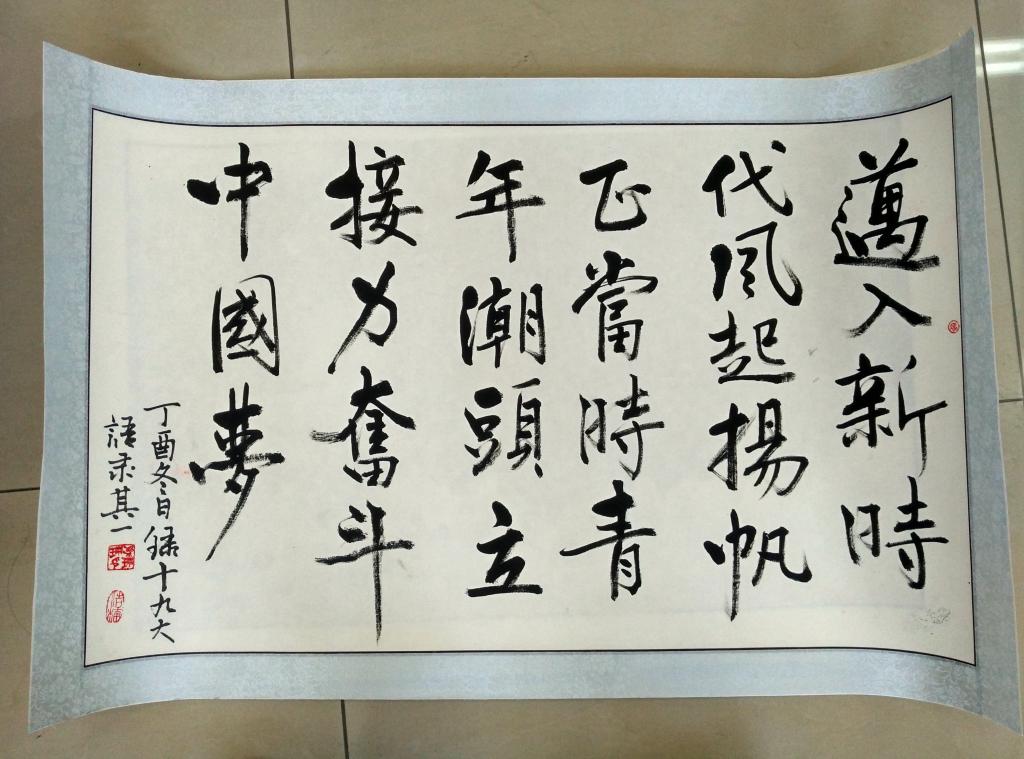 邁入新時
代風起揚帆
正當時青
年潮頭立
接力奮斗
中國夢
丁酉冬日録十九大
語录其一